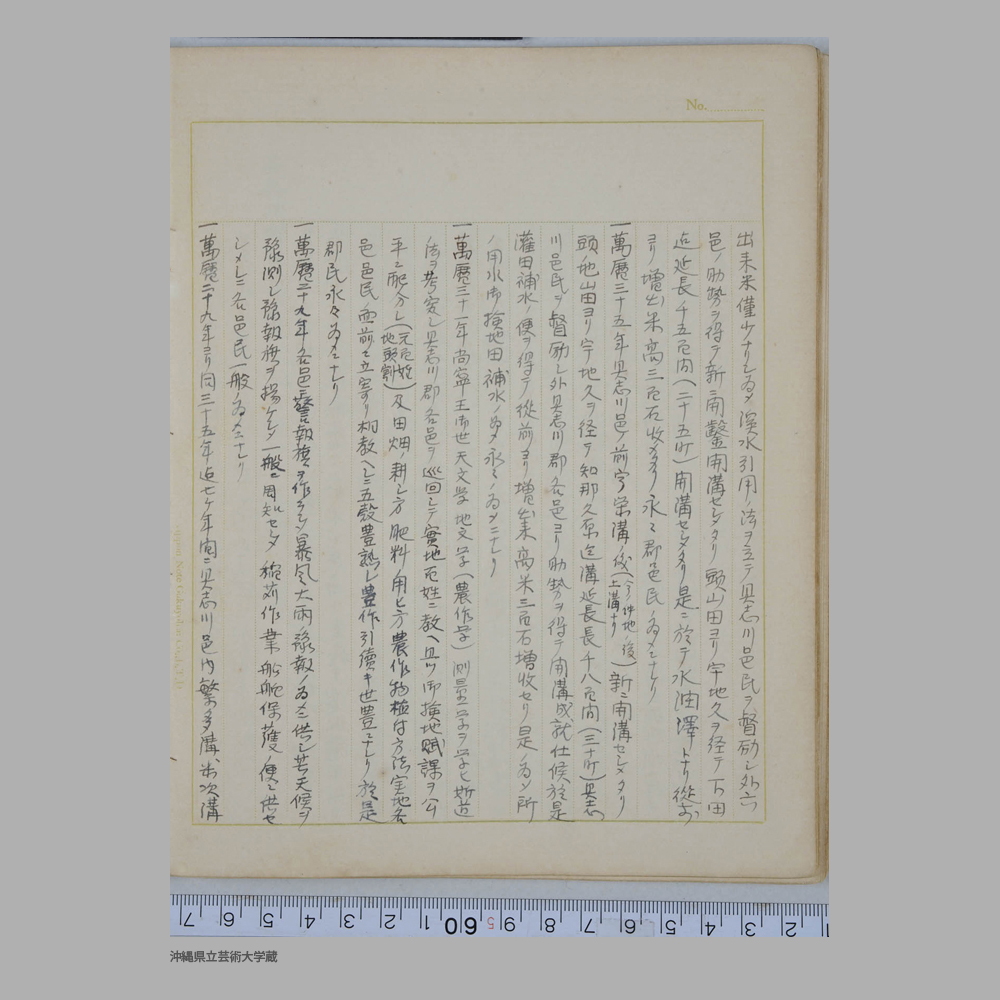 No.
出来米僅少ナルシ為メ渓水引用ノ法ヲ立テ具志川邑民ヲ督励シ外六
邑ノ助勢ヲ得テ新ニ開鑿開溝セシメタリ頭山田ヨリ宇地久ヲ経テ下田
迄延長千五百間(二十五町)開溝セシメタリ是ニ於テ水油澤トナリ従前
ヨリ増出米高二百石収メタリ永々郡邑民ノ為メニナレリ
一萬暦三十五年具志川邑ノ前字栄溝ノ後(今ノ件地ノ後上溝ナリ)新ニ開溝セシメタリ
頭ノ地山田ヨリ宇地久ヲ経テ知那久原迄溝延長長千八百間(三十町)具志
川邑民ヲ督励シ外具志川郡各邑ヨリ助勢ヲ得テ開溝成就仕候於是
灌田補水ノ便ヲ得テ従前ヨリ増出来高米三百石増収セリ是ノ為メ所
ノ用水御検地田補水ノ為メ永々ノ為メニナレリ
一萬暦三十一年尚寧王御世天文学地文学(農作学)測量学ヲ学ヒ妍道
法ヲ考案シ具志川郡各邑ヲ巡回シテ實地百姓ニ教ヘ且ツ御検地賦課ヲ公
平ニ配分シ(元百姓地頭割)及田畑ノ耕シ方肥料ノ用ヒ方農作物植付方法実地各
邑邑民ノ面前ニ立寄リ相教ヘシニ五穀豊熟シ豊作引續キ世豊ニナレリ於是
郡民永々為メニナレリ
一萬暦二十九年各邑ニ警報旗ヲ作ラシメ暴風大雨ノ豫報ノ為メニ供シ其天候ヲ
豫測シ豫報旗ヲ揚ケシメ一般ニ周知セシメ稲苅作業船舶保護ノ便ニ供セ
シメシニ各邑民一般ノ為メニナレリ
一萬暦二十九年ヨリ同三十五年迄七ケ年間ニ具志川邑内繁多溝米次溝
7 6 5 4 3 2 1 60 5 9 8 7 6 5 4 3 2
沖縄県立芸術大学蔵